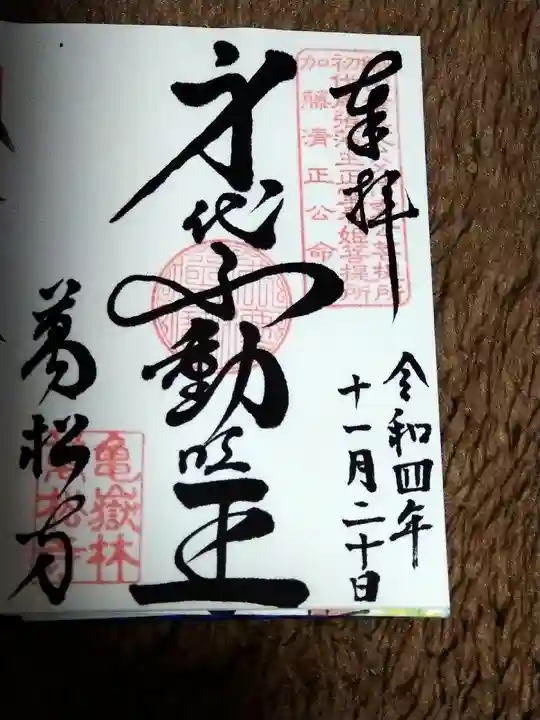 奉拝
令和四年
十一月二十日
加藤清正公命
身代不動明王
萬松寺
亀嶽林
萬松寺